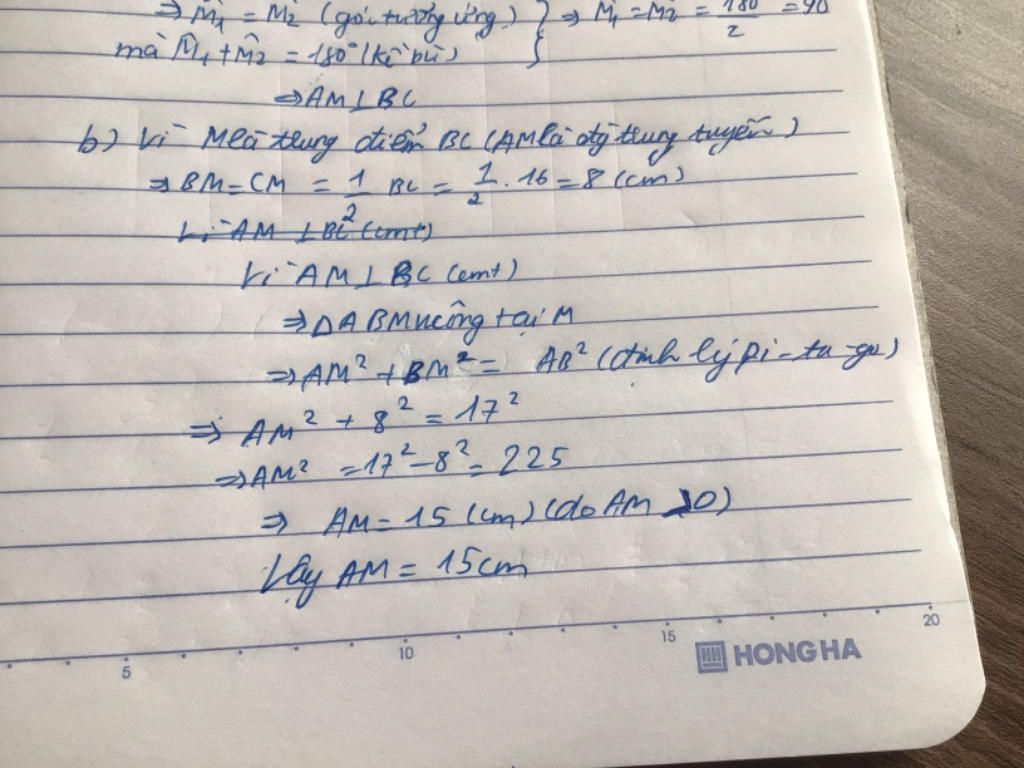 ⇒ M̂₁ = M̂₂ (góc tương ứng) } ⇒ M̂₁ = M̂₂ = 180/2 = 90
mà M̂₁ + M̂₂ = 180° (kề bù)
⇒ AM ⊥ BC
b) Vì M là trung điểm BC (AM là đg trung tuyến)
⇒ BM = CM = 1/2 BC = 1/2 . 16 = 8 (cm)
Vì AM ⊥ BC (cmt)
Vì AM ⊥ BC (cmt)
⇒ ΔABM vuông tại M
⇒ AM² + BM² = AB² (định lý Pi-ta-go)
⇒ AM² + 8² = 17²
⇒ AM² = 17² - 8² = 225
⇒ AM = 15 (cm) (do AM > 0)
Vậy AM = 15cm
5 10 15 20
HONG HA